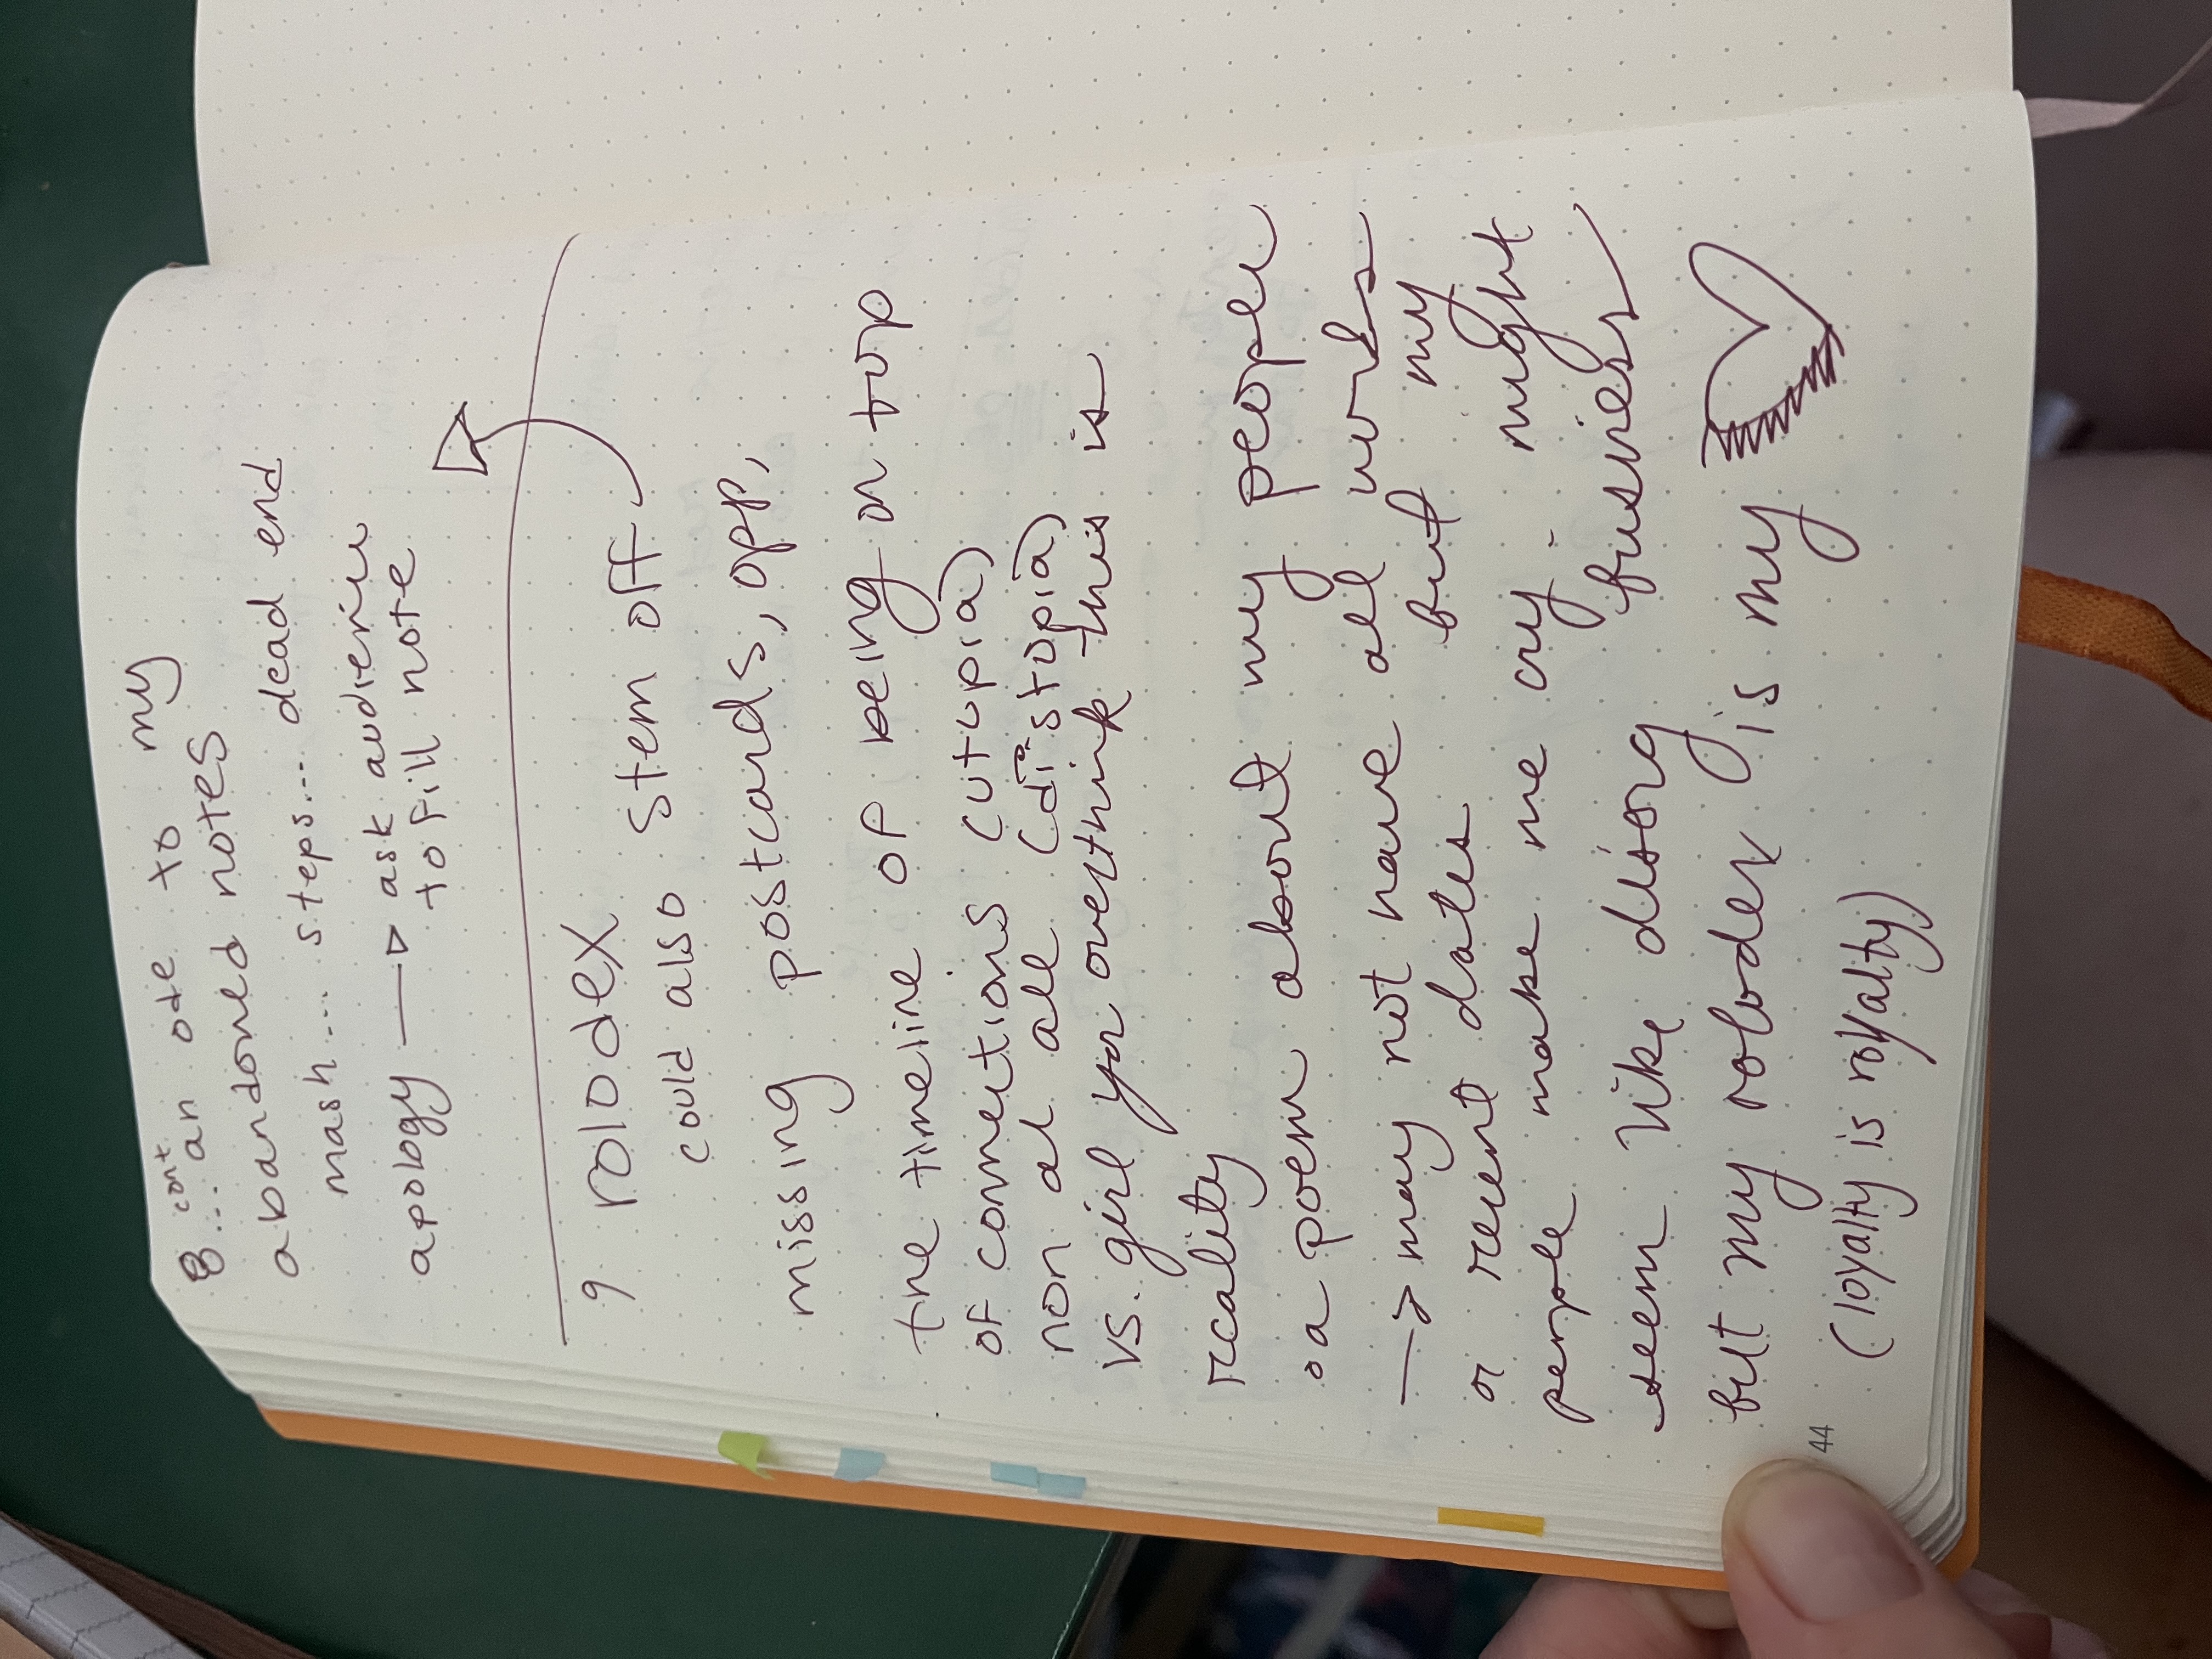 8 cont... an ode to my
abandoned notes
mash... steps... dead end
apology —▷ ask audience
to fill note
9 rolodex
could also stem off
missing postcards, opp,
the timeline of being on top
of connections (utopia)
non at all (distopia)
vs. girl you overthink this is
reality
• a poem about my people
—> may not have all works
or recent dates but my
people make me cry. might
seem like disorg business
but my rolodex is my ♡
44
(loyalty is royalty)